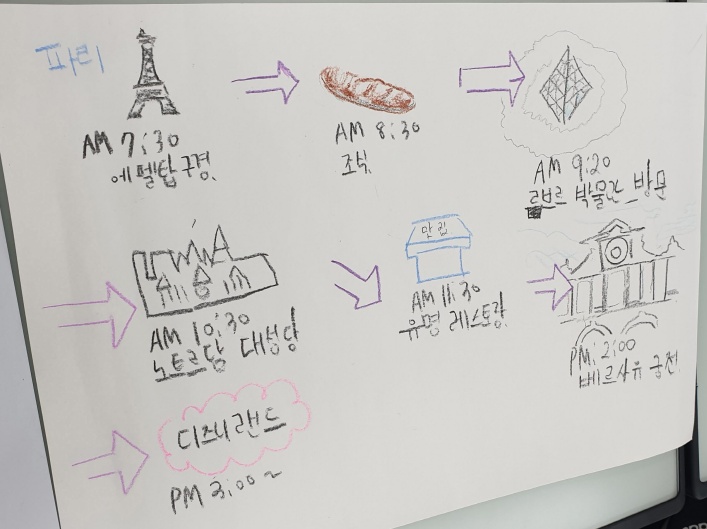 파리
AM 7:30
에펠탑 구경.
AM 8:30
조식.
AM 9:20
르브르 박물관 방문
AM 10:30
노트르담 대성당
맛집
AM 11:30
유명 레스토랑
PM: 2:00
베르사유 궁전.
디즈니랜드
PM 3:00~